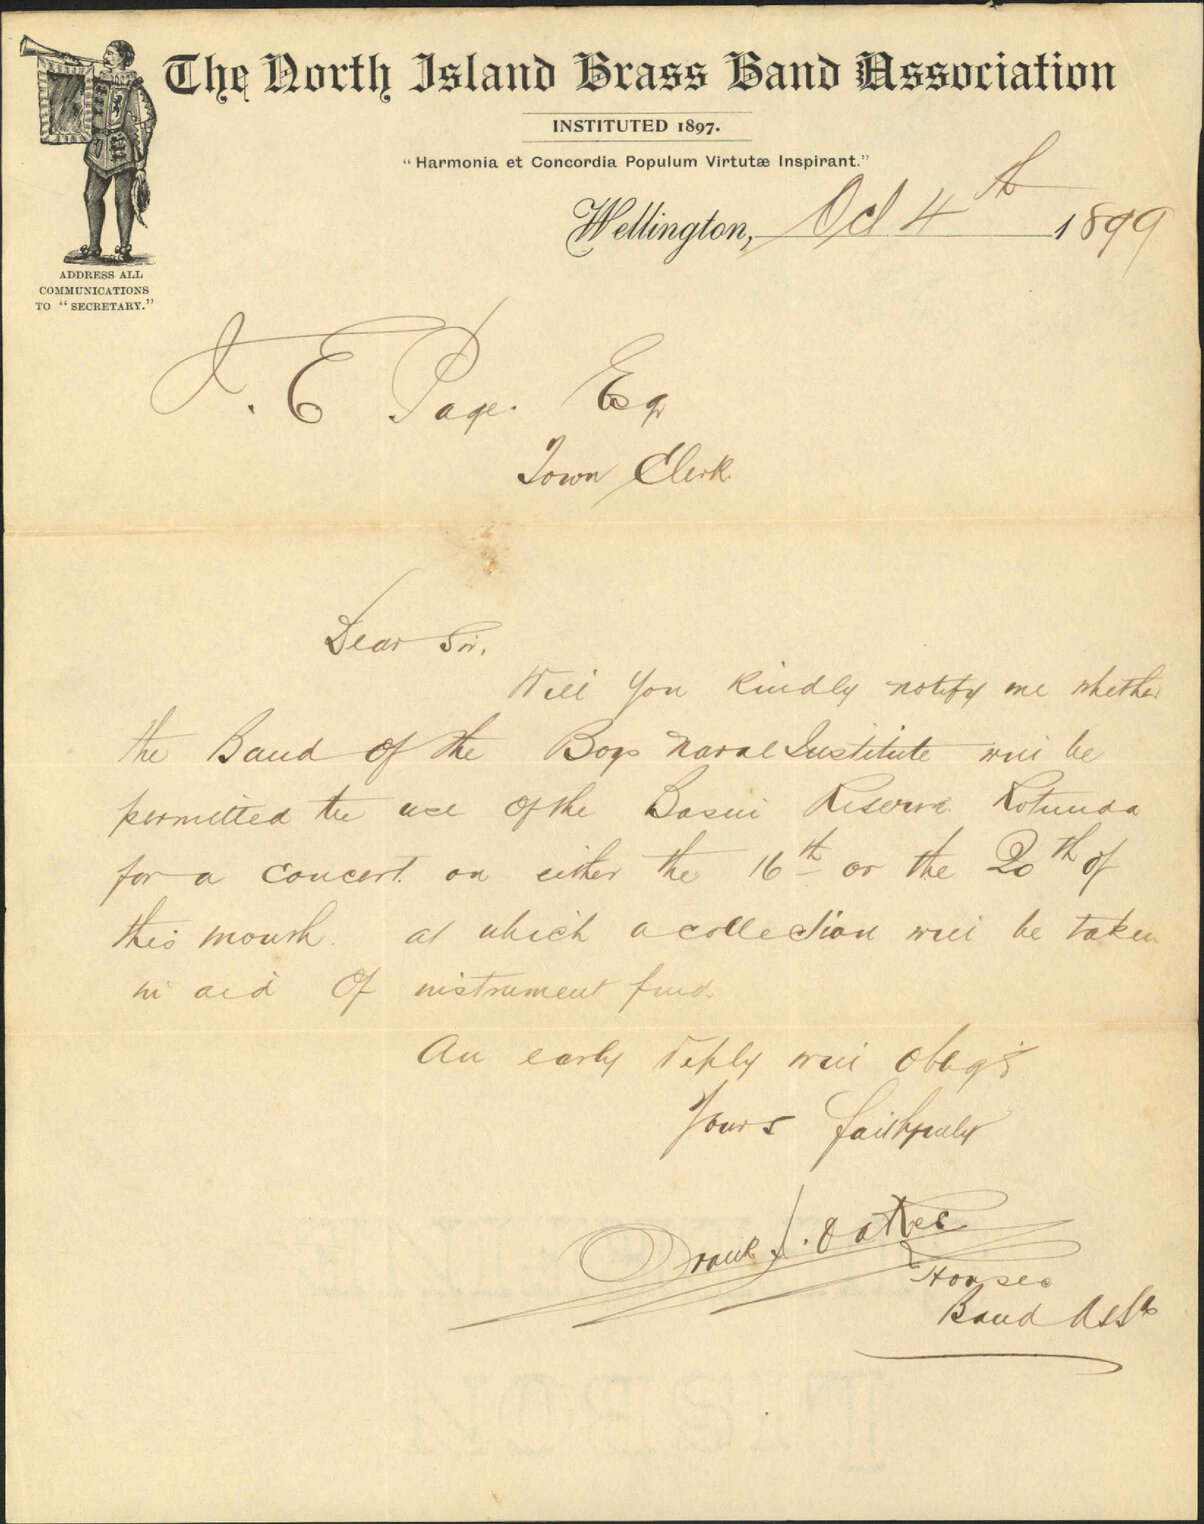 The North Island Brass Band Association
INSTITUTED 1897.
"Harmonia et Concordia Populum Virtutæ Inspirant."
Wellington, Oct 4th 1899
ADDRESS ALL
COMMUNICATIONS
TO "SECRETARY."
J. E Page. Esq
Town Clerk.
Dear Sir,
Will you kindly notify me whether
the Band of the Boys Naval Institute will be
permitted the use of the Basin Reserve Rotunda
for a concert on either the 16th or the 20th of
this month. at which a collection will be taken
in aid of instrument fund.
An early reply will oblige
Yours faithfully
Frank J. Oakes
Hon sec
Band Assn